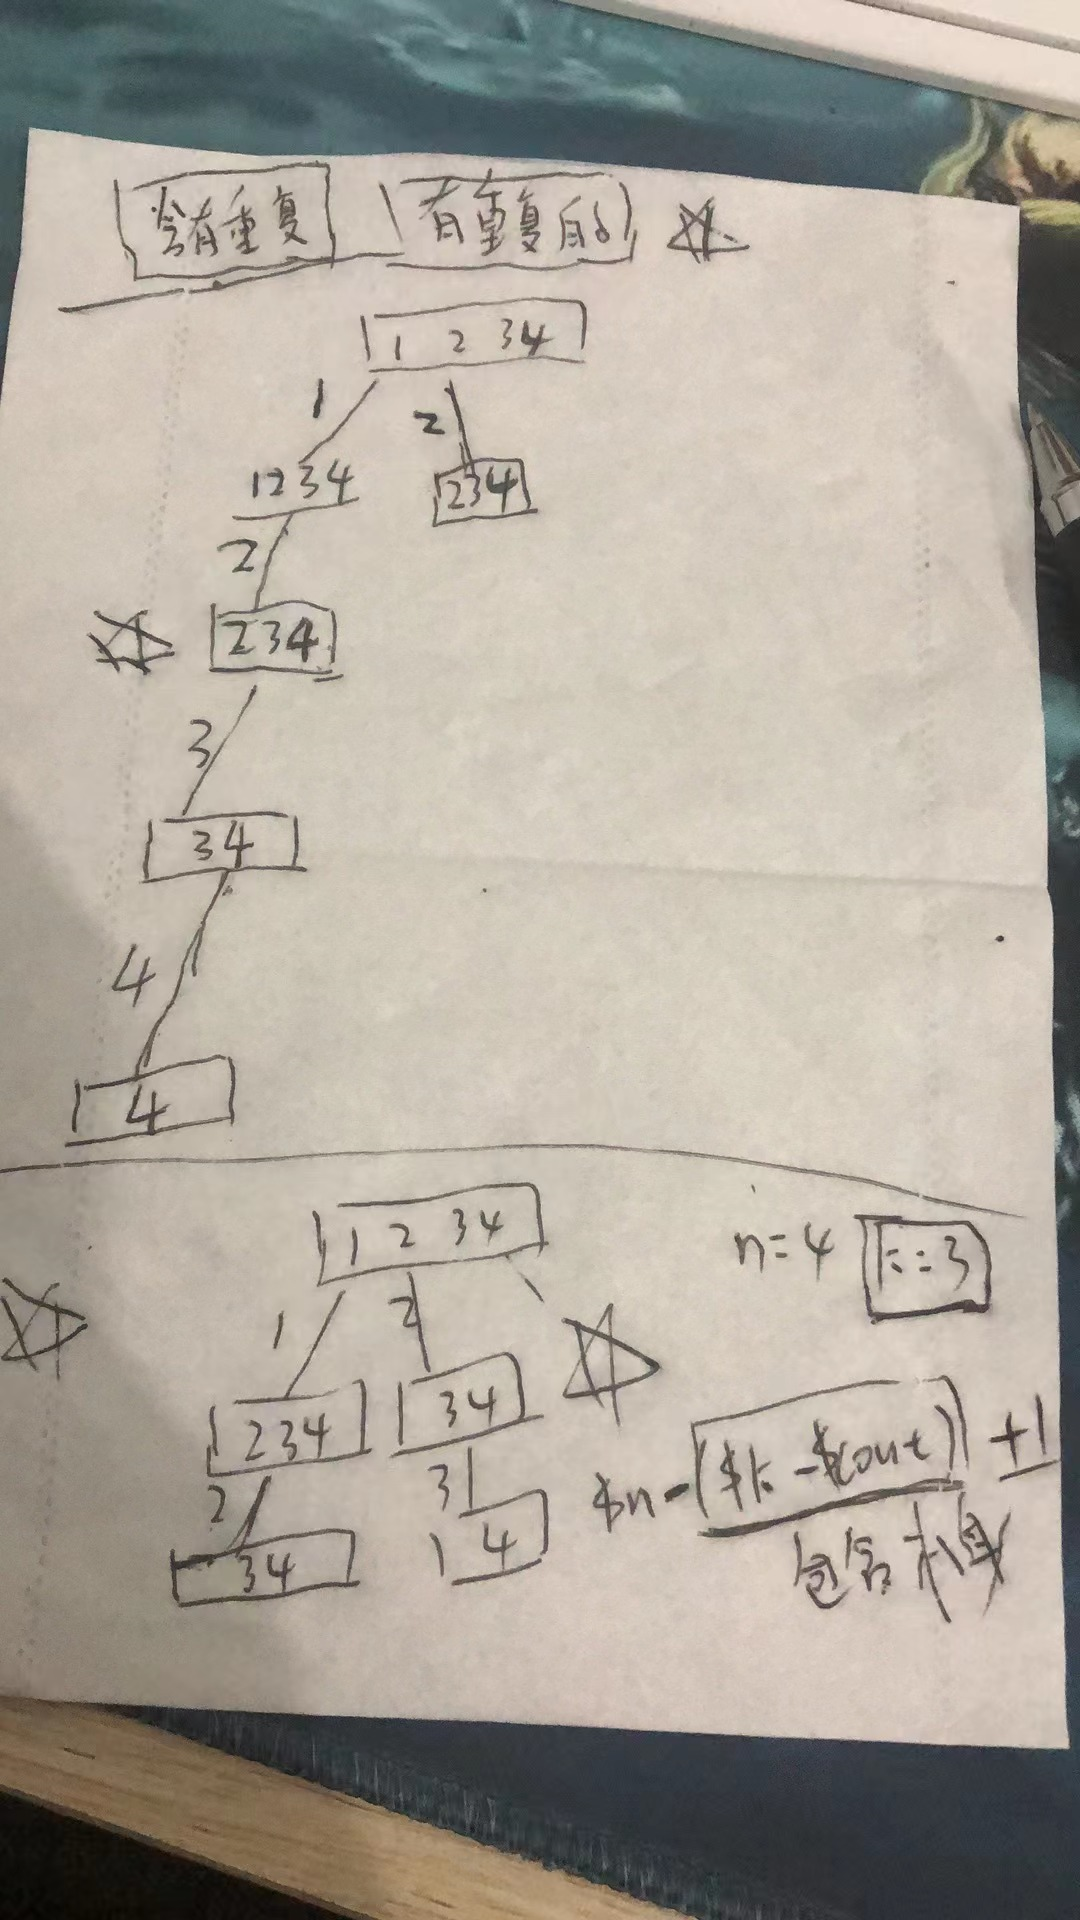 含有重复 有重复的
1 2 3 4
1 2
1234 234
2
234
3
34
4
4
1 2 3 4 n=4 k=3
1 2
234 34
$n-($k-$cout)+1
2 3
34 4
包含本身